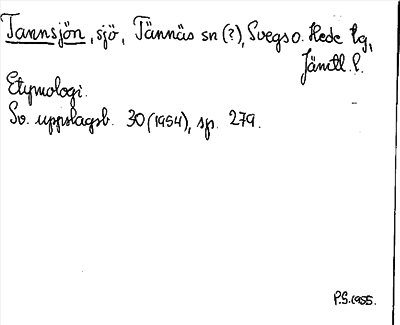 Tannsjön, sjö, Tännäs sn (?), Svegs o. Hede tg,
Jämtl. l.
Etymologi.
Sv. uppslagsb. 30 (1954), sp. 279.
P.S. 1955.